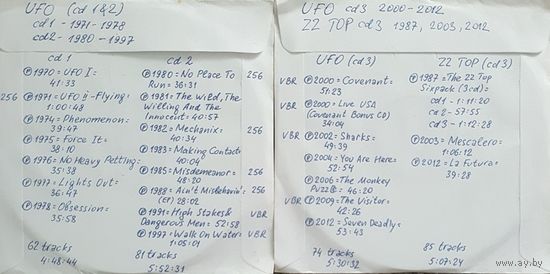 UFO (cd 1&2)
cd1 - 1971-1978
cd2 - 1980-1997
cd 1
℗ 1970 = UFO I =
41:33
256 ℗ 1971 = UFO II - Flying =
1:00:48
℗ 1974 = Phenomenon =
39:47
℗ 1975 = Force It =
38:10
℗ 1976 = No Heavy Petting =
35:38
℗ 1977 = Lights Out =
36:47
℗ 1978 = Obsession =
35:58
62 tracks
4:48:44
cd 2
℗ 1980 = No Place To 256
Run = 36:31
℗ 1981 = The Wild, The
Willing And The
Innocent = 40:57
℗ 1982 = Mechanix = 256
40:34
℗ 1983 = Making Contact =
40:04
℗ 1985 = Misdemeanor = 256
48:20
℗ 1988 = Ain't Misbehavin' = 256
(EP) 28:02
℗ 1991 = High Stakes &
Dangerous Men = 52:58 VBR
℗ 1997 = Walk On Water = VBR
1:05:01
81 tracks
5:52:31
UFO cd3 2000-2012
ZZ TOP cd3 1987, 2003, 2012
UFO (cd 3)
VBR ℗ 2000 = Covenant =
51:23
VBR ℗ 2000 = Live USA
(Covenant Bonus CD)
34:04
VBR ℗ 2002 = Sharks =
49:39
℗ 2004 = You Are Here =
52:54
℗ 2006 = The Monkey
Puzzle = 46:20
VBR ℗ 2009 = The Visitor =
42:26
℗ 2012 = Seven Deadly =
53:43
74 tracks
5:30:32
ZZ TOP (cd 3)
℗ 1987 = The ZZ Top
Sixpack (3cd) =
cd1 - 1:11:20
cd2 - 57:55
cd3 - 1:12:28
℗ 2003 = Mescalero =
1:06:12
℗ 2012 = La Futura =
39:28
85 tracks
5:07:24
www.ay.by